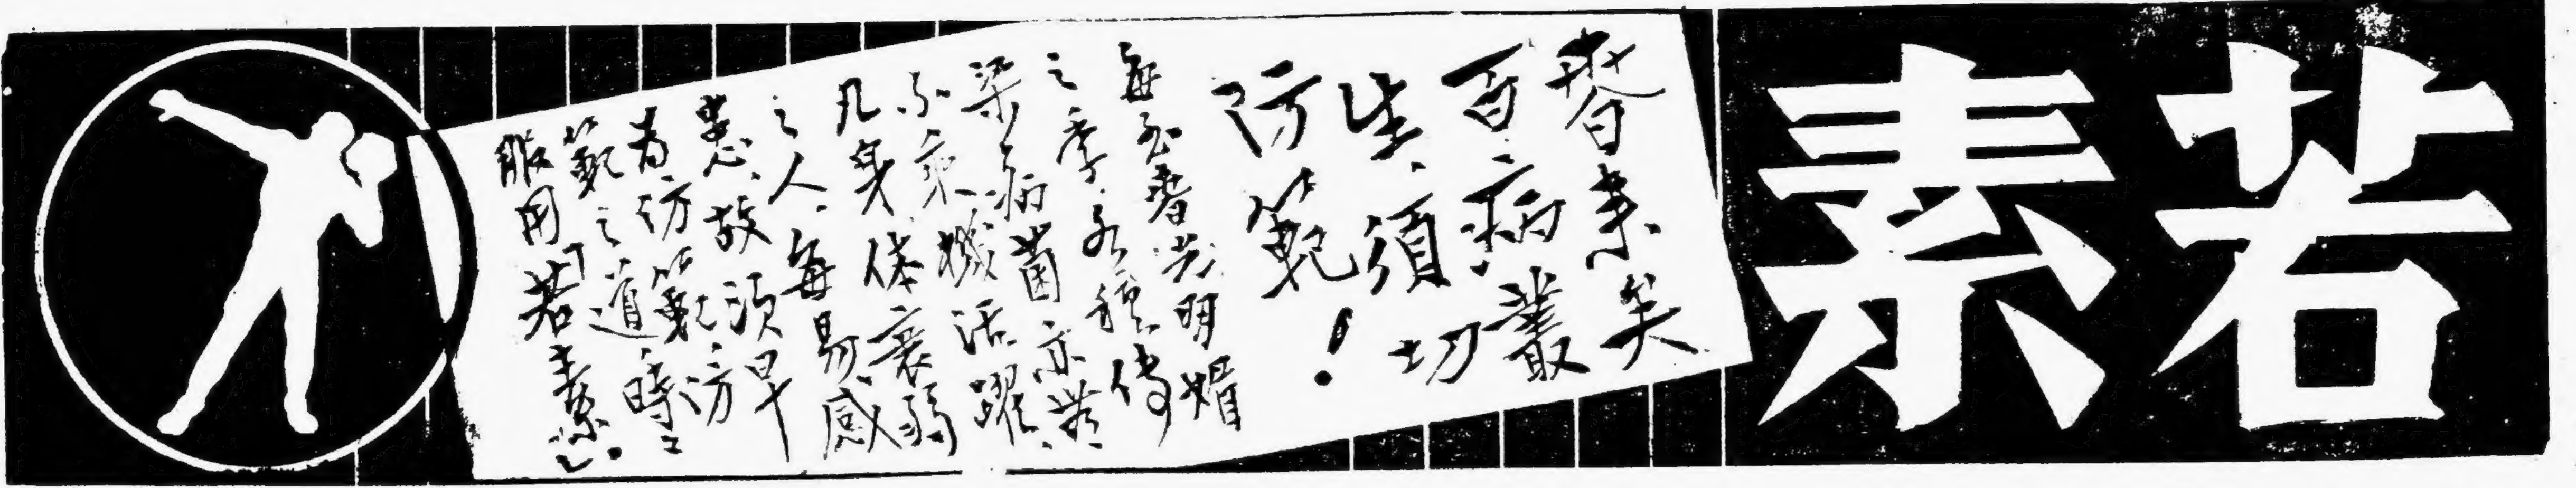 若素
春来矣
百病叢
生、須切
防範！
每至春光明媚
之季、各種傳
染病菌亦無
不乘機活躍、
凡身体衰弱
之人、每易感
患、故須早
為防範、防
範之道、時々
服用「若素」。